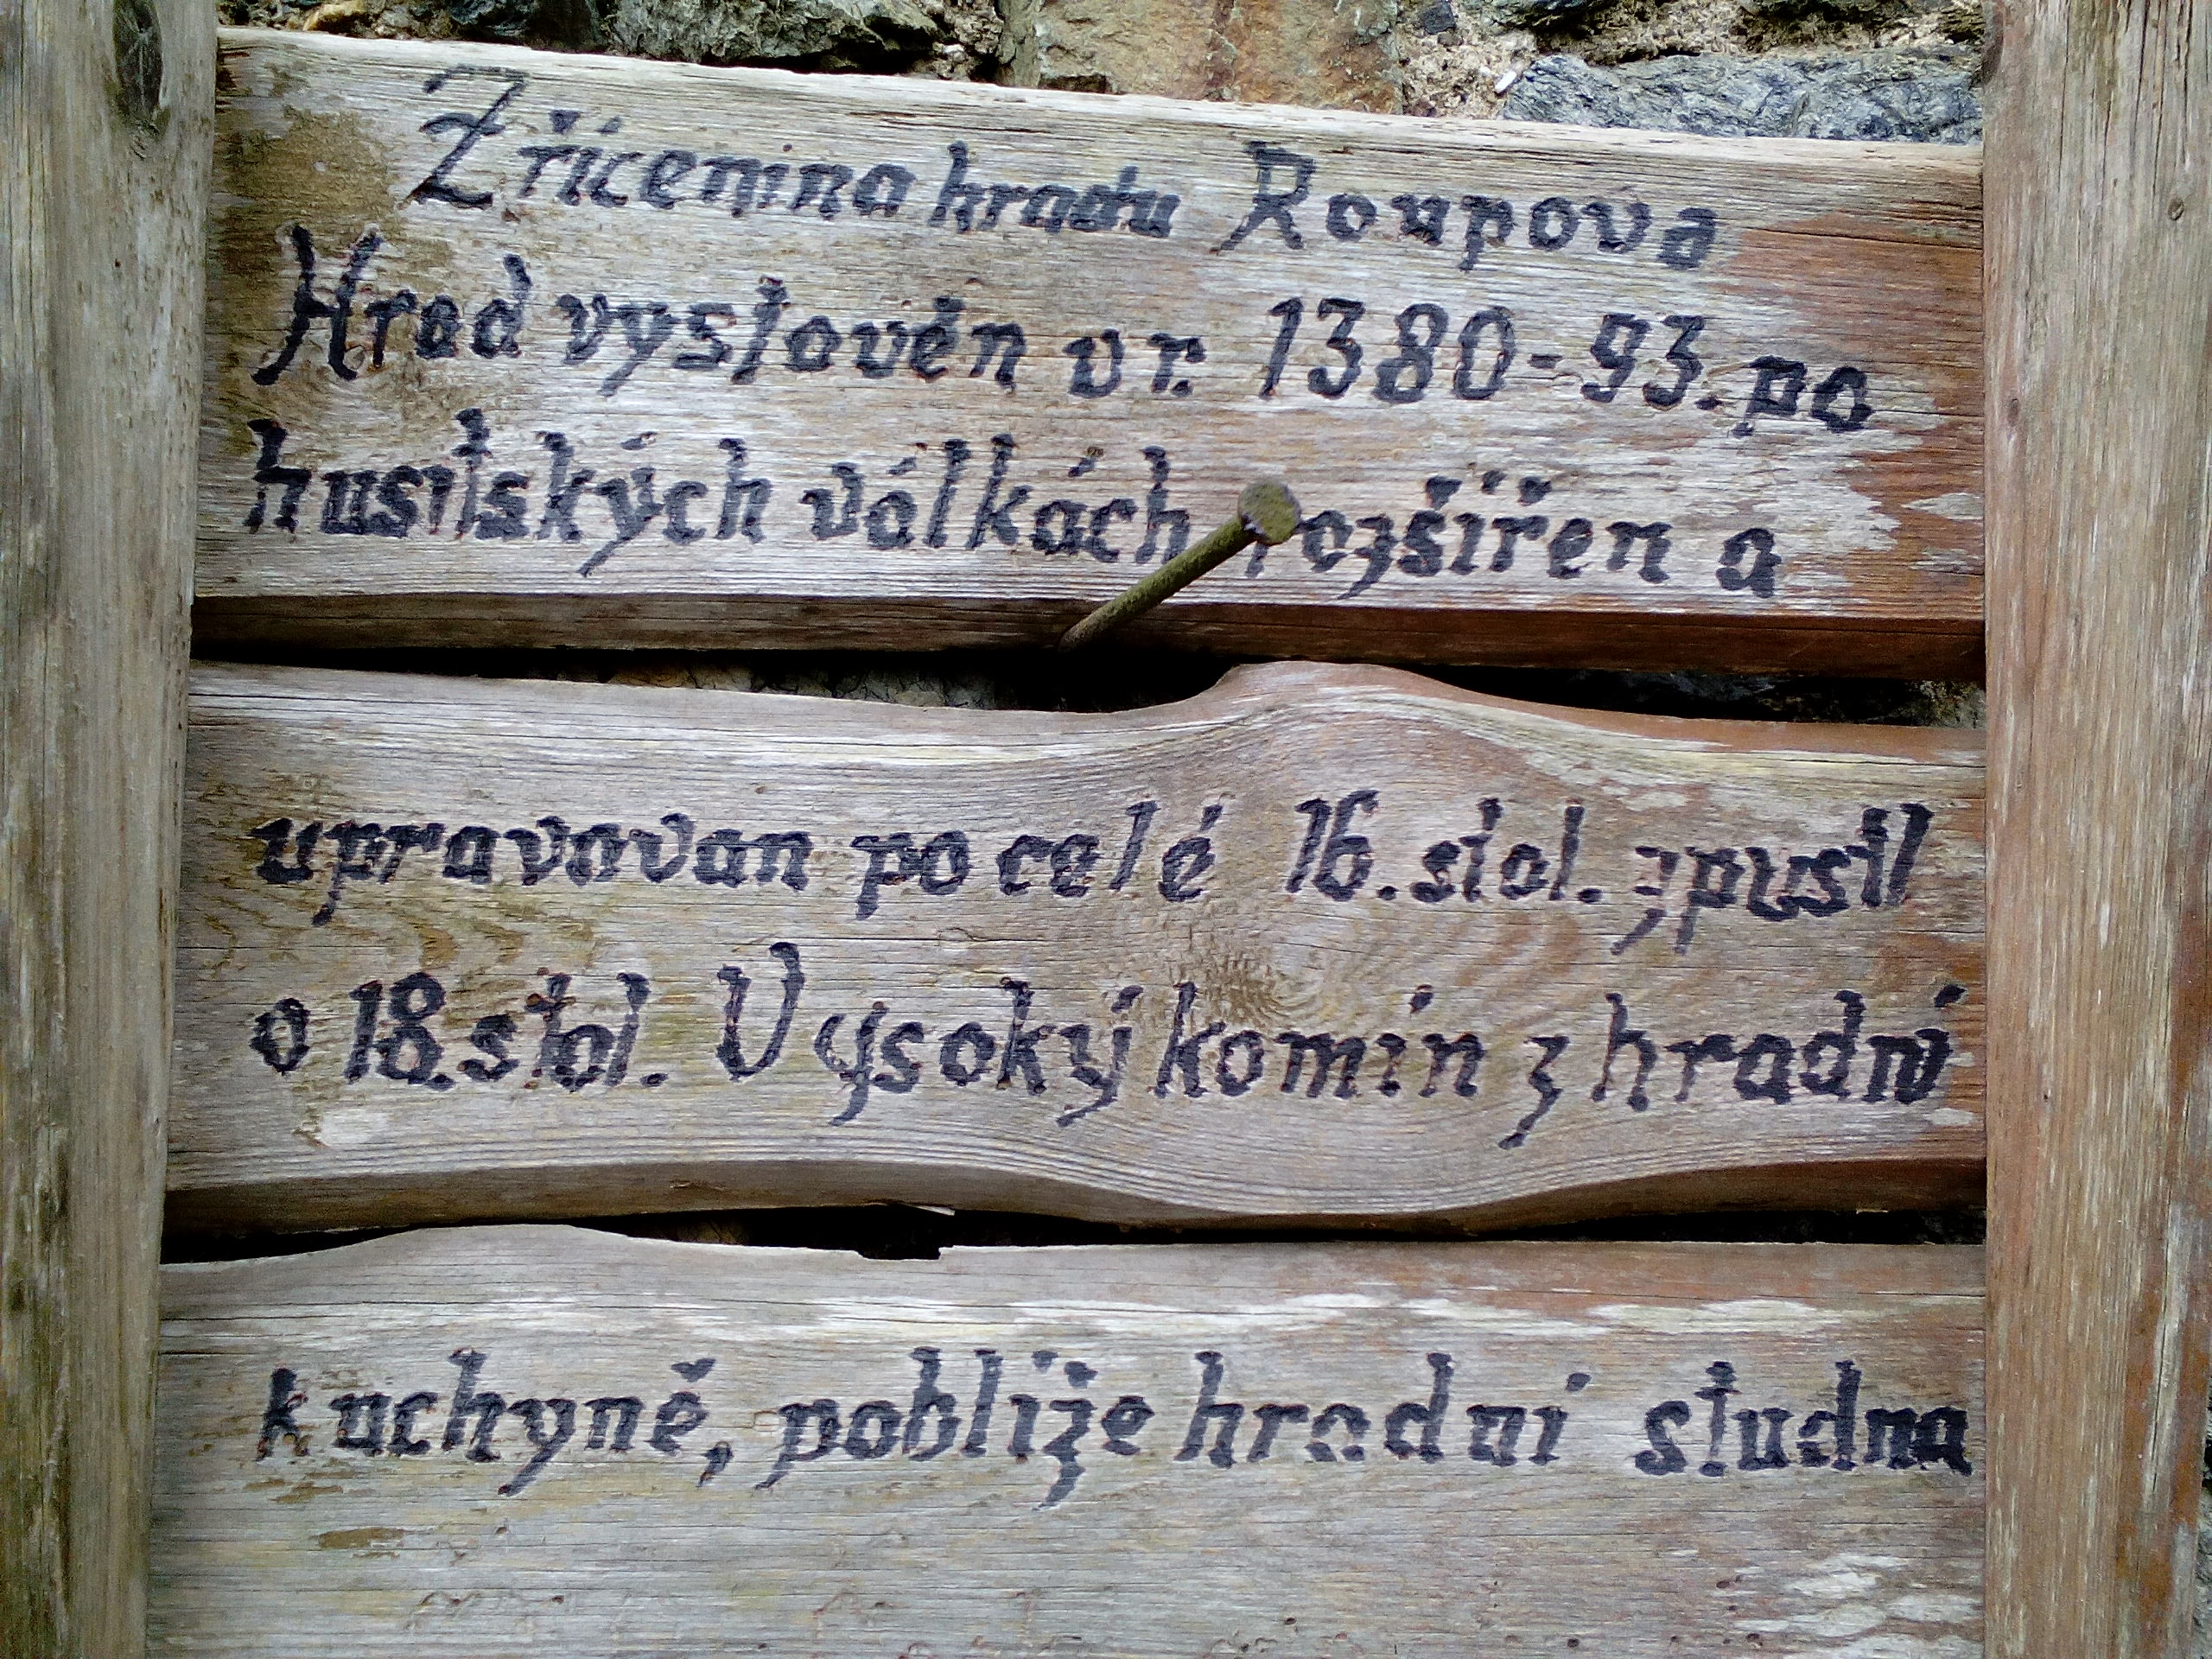 Zřícenina hradu Roupova
Hrad vystověn v r. 1380-93. po
husitských válkách rozšířen a
upravován po celé 16. stol. zpustl
o 18. stol. Vysoký komín z hradní
kuchyně, poblíže hradní studna